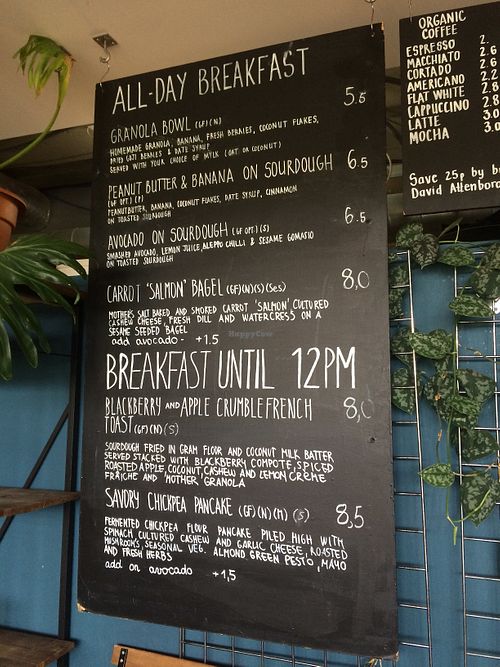 ALL-DAY BREAKFAST
GRANOLA BOWL (GF)(N) 5.5
HOMEMADE GRANOLA, BANANA, FRESH BERRIES, COCONUT FLAKES,
DRIED GOJI BERRIES & DATE SYRUP
SERVED WITH YOUR CHOICE OF MILK (OAT OR COCONUT)
PEANUT BUTTER & BANANA ON SOURDOUGH 6.5
(GF OPT) (P)
PEANUTBUTTER, BANANA, COCONUT FLAKES, DATE SYRUP, CINNAMON
ON TOASTED SOURDOUGH
AVOCADO ON SOURDOUGH (GF OPT) (S) 6.5
SMASHED AVOCADO, LEMON JUICE, ALEPPO CHILLI & SESAME GOMASIO
ON TOASTED SOURDOUGH
CARROT 'SALMON' BAGEL (GF)(N)(S)(SES) 8,0
MOTHERS SALT BAKED AND SMOKED CARROT 'SALMON' CULTURED
CASHEW CHEESE, FRESH DILL AND WATERCRESS ON A
SESAME SEEDED BAGEL
add avocado - +1.5
BREAKFAST UNTIL 12PM
BLACKBERRY AND APPLE CRUMBLE FRENCH 8,0
TOAST (GF)(N)(S)
SOURDOUGH FRIED IN GRAM FLOOR AND COCONUT MILK BATTER
SERVED STACKED WITH BLACKBERRY COMPOTE, SPICED
ROASTED APPLE, COCONUT, CASHEW AND LEMON CRÈME
FRAÎCHE AND 'MOTHER' GRANOLA
SAVORY CHICKPEA PANCAKE (GF)(N)(M)(S) 8,5
FERMENTED CHICKPEA FLOUR PANCAKE PILED HIGH WITH
SPINACH, CULTURED CASHEW AND GARLIC CHEESE, ROASTED
MUSHROOM'S, SEASONAL VEG. ALMOND GREEN PESTO, MAYO
AND FRESH HERBS
add on avocado +1,5
ORGANIC
COFFEE
ESPRESSO 2.
MACCHIATO 2.
CORTADO 2.6
AMERICANO 2.2
FLAT WHITE 2.8
CAPPUCCINO 2.8
LATTE 3.0
MOCHA 3.0
Save 25p by b
David Attenboro
HappyCow